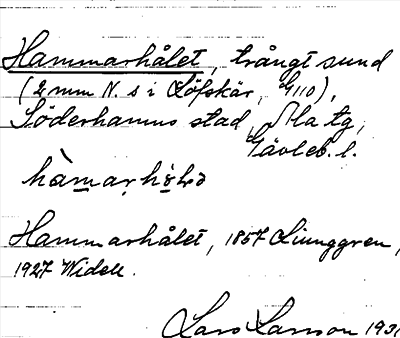 Hammarhålet, trångt sund
(2 mm N. s i Löfskär, G110),
Söderhamns stad, Ala tg,
Gävleb. l.
hàmarhòlə
Hammarhålet, 1857 Ljunggren,
1927 Widell.
Lars Larsson 1931